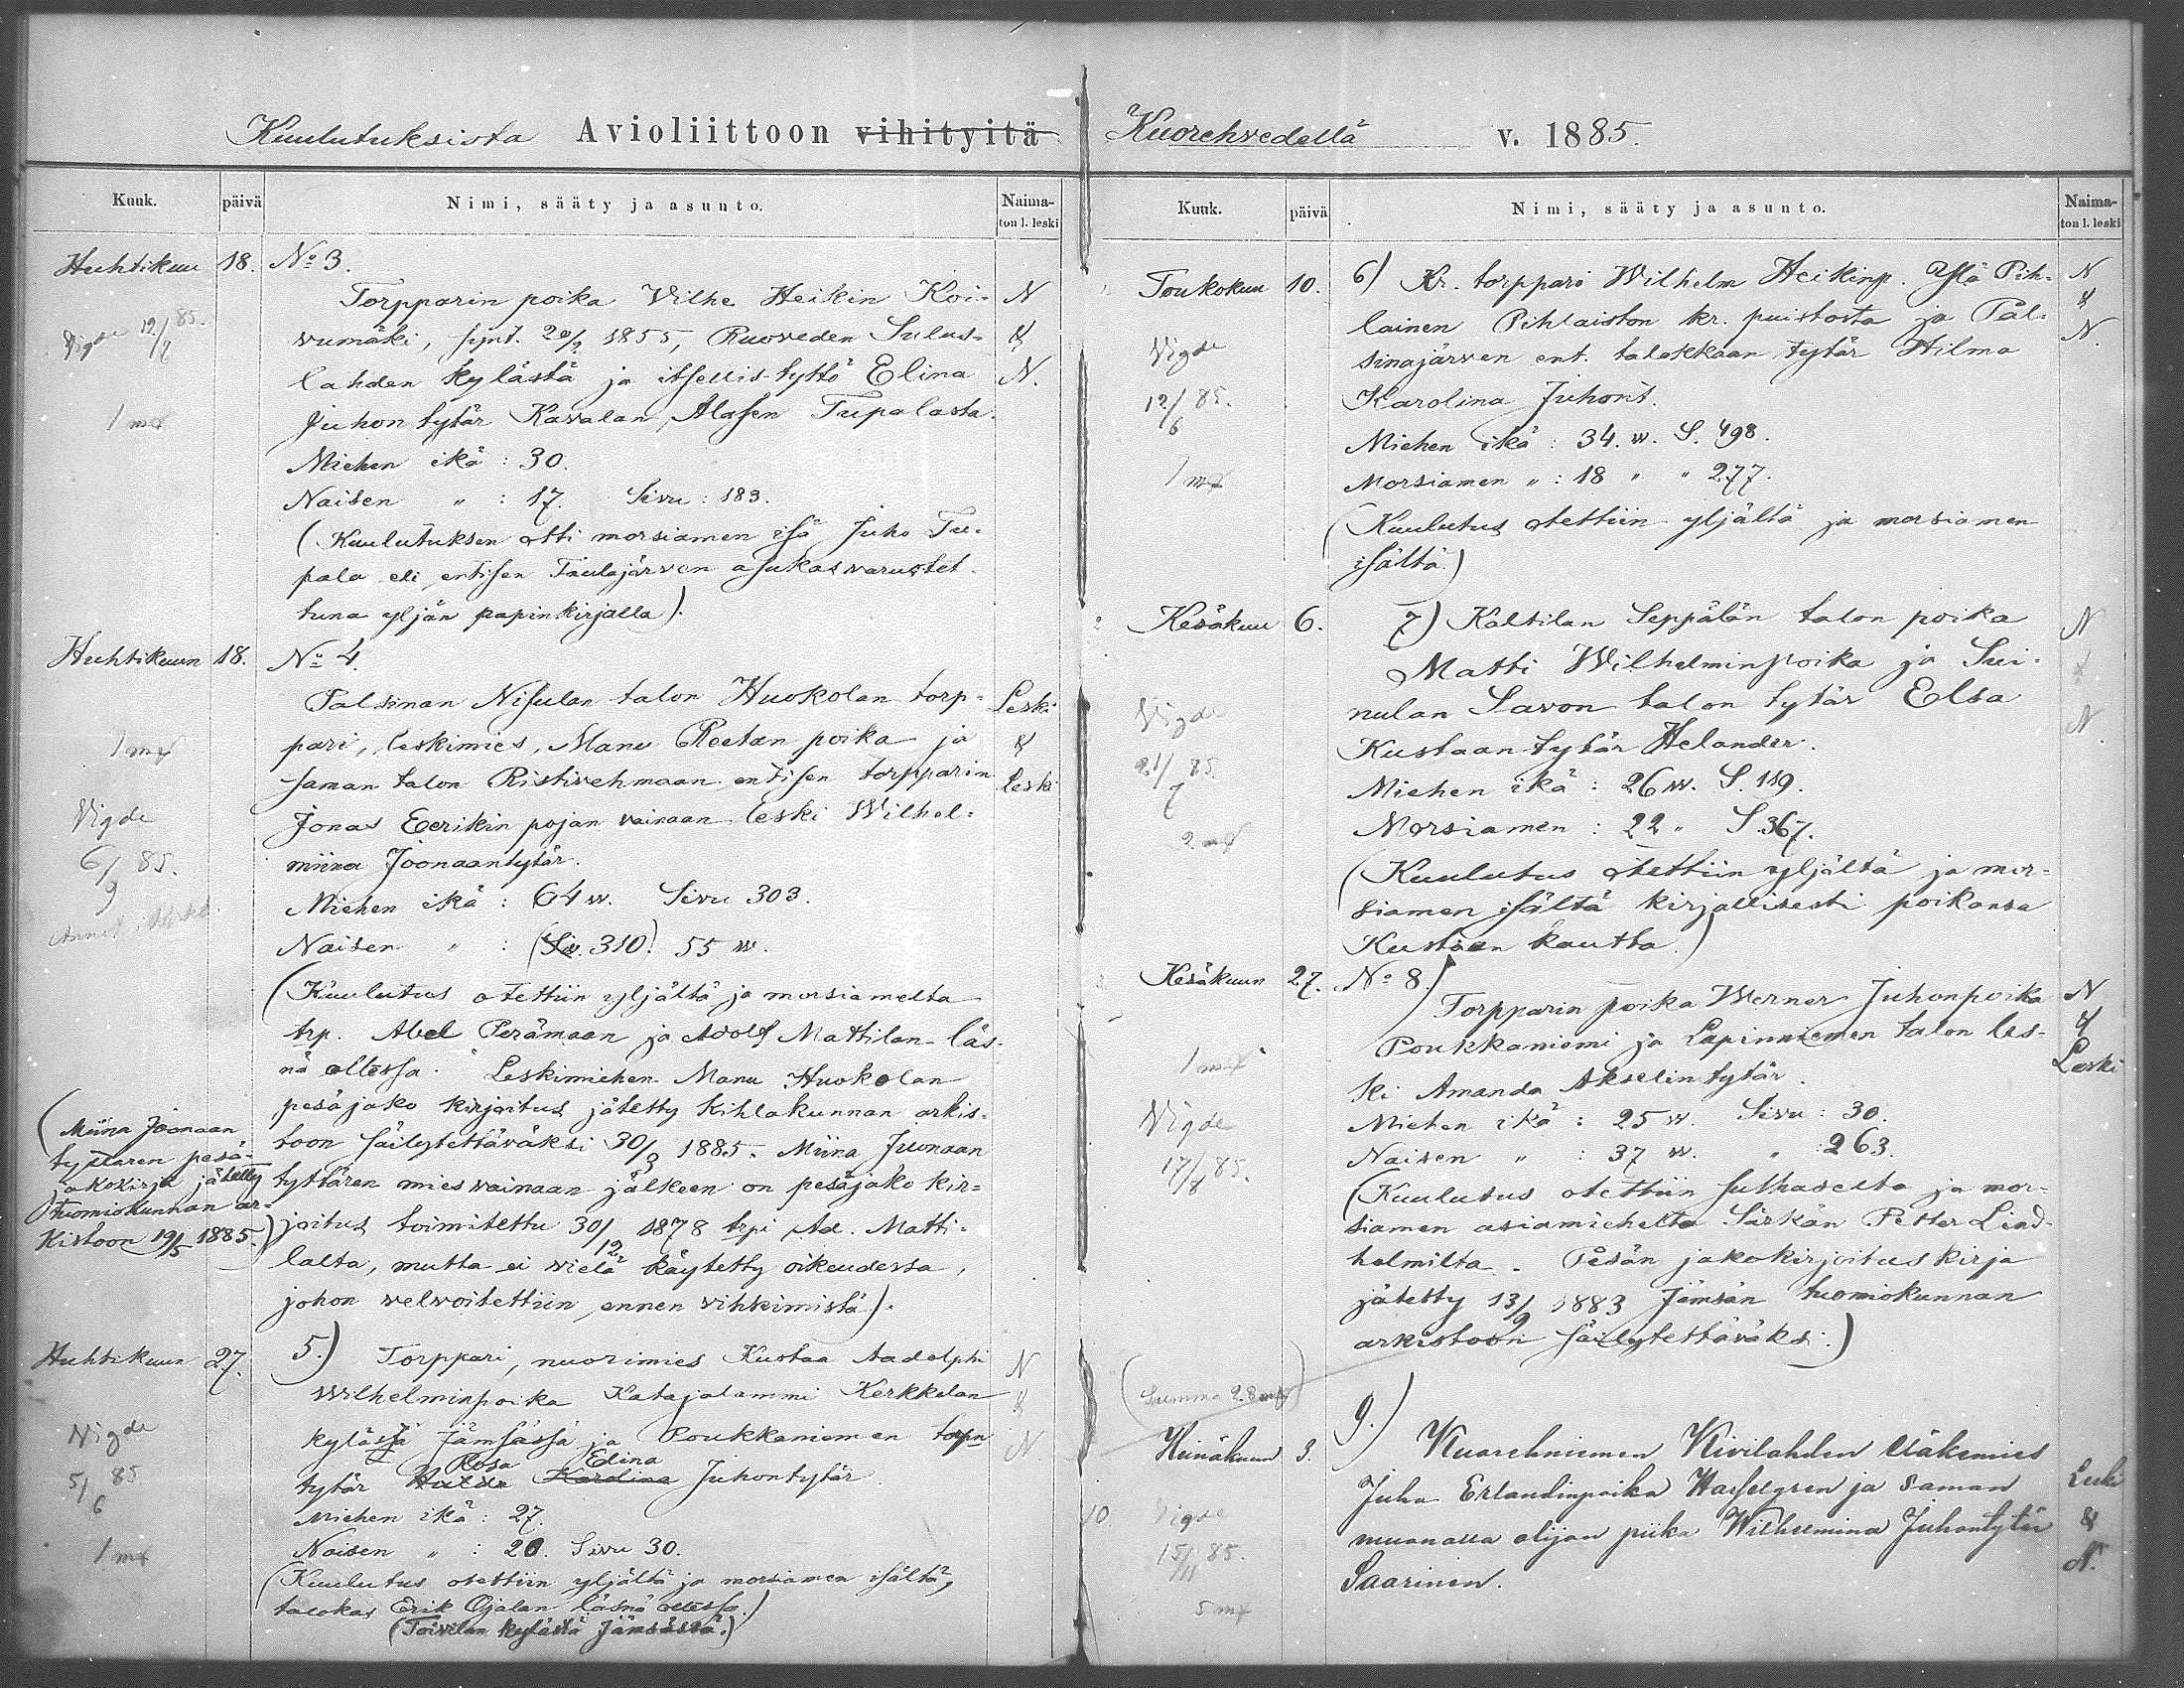 Kuulutuksista Avioliittoon vihityitä Kuorehvedellä v. 1885.
Kuuk. päivä Nimi, sääty ja asunto. Naimaton l. leski
Huhtikuu 18. No 3.
Torpparin poika Vilhe Heikin Koi- N
Vigde 12/7 85.
vumäki, synt. 1855, Ruoveden Sulus- &
lahden kylästä ja itsellis-tyttö Elina N.
1 m
Juhon tytär Kavalan, Alasen Tupalasta.
Miehen ikä : 30.
Naisen " : 17. Sivu : 183.
(Kuulutuksen otti morsiamen isä Juho Tu-
pala eli entisen Taulajärven asukas varustet
tuna yljän papinkirjalla).
Huhtikuun 18. No 4.
Palsinan Nisulan talon Huokolan torp- Leski
1 m
pari, leskimies, Manu Reetan poika ja &
saman talon Ristivehmaan entisen torpparin Leski
Vigde
Jonas Eerikin pojan vainaan leski Wilhel-
6/9 85.
miina Joonaantytär.
Miehen ikä : 64 w. Sivu 303.
Naisen " : (Siv. 310.) 55 w.
(Kuulutus otettiin yljältä ja morsiamelta
trp. Abel Perämaan ja Adolf Mattilan läs-
nä ollessa. Leskimiehen Manu Huokolan
pesäjako kirjoitus jätetty kihlakunnan arkis-
toon säilytettäväksi 30/3 1885. Miina Juonaan
tyttären mies vainaan jälkeen on pesäjako kir-
joitus toimitettu 30/12 1878 trpi Ad. Matti-
lalta, mutta ei vielä käytetty oikeudessa,
johon velvoitettiin, ennen vihkimistä).
(Miina Joonaan
tyttären pesä-
jakokirja jätetty
tuomiokunnan ar-
kistoon 19/5 1885.)
Huhtikuun 27. 5.) Torppari, nuorimies Kustaa Aadolphi N
Wilhelminpoika Katajalammi Kerkkolan &
Vigde
kylässä Jämsässä ja Poukkaniemen torpn N
Rosa Edina
5/6 85
tytär Hulda Karolina Juhontytär.
Miehen ikä : 27.
1 m
Naisen " : 20. Sivu 30.
(Kuulutus otettiin yljältä ja morsiamen isältä,
talokas Erik Ojalan läsnä ollessa.)
(Toivilan kylästä Jämsästä.)
Kuuk. päivä Nimi, sääty ja asunto. Naimaton l. leski
Toukokuu 10. 6) Kr. torppari Wilhelm Heikinp. Ylä Pih- N
lainen Pihlaiston kr. puistosta ja Pal- &
Vigde
sinajärven ent. talokkaan tytär Hilma N.
12/6 85.
Karolina Juhont.
Miehen ikä : 34. w. S. 498.
1 m
Morsiamen " : 18 " " 277.
(Kuulutus otettiin yljältä ja morsiamen
isältä.)
2 Kesäkuu 6. 7) Kaltilan Seppälän talon poika N
Matti Wilhelminpoika ja Sui- &
Vigde
nulan Savon talon tytär Elsa N.
Kustaan tytär Helander.
21/7 85.
Miehen ikä : 26 w. S. 189.
Morsiamen : 22 " S. 367.
2 m
(Kuulutus otettiin yljältä ja mor-
siamen isältä kirjallisesti poikansa
Kustaan kautta.)
3 Kesäkuun 27. No 8.)
Torpparin poika Werner Juhonpoika N
Poukkaniemi ja Lapinniemen talon les- &
1 m
ki Amanda Akselintytär. Leski
Vigde
Miehen ikä : 25 w. Sivu : 30.
Naisen " : 37 w. " : 263.
17/8 85.
(Kuulutus otettiin sulhaselta ja mor-
siamen asiamieheltä Särkän Petter Lind-
holmilta. Pesän jakokirjoituskirja
jätetty 13/9 1883 Jämsän tuomiokunnan
arkistoon säilytettäväksi.)
(Summa 28 m)
Heinäkuun 3. 9.) Kuorehniemen Kivilahden Mäkimies
Juha Erlandinpoika Hasselgren ja saman Leski
10 Vigde
muonassa olijan piika Wilhelmina Juhontytär &
15/11 85.
Saarinen. N.
5 m